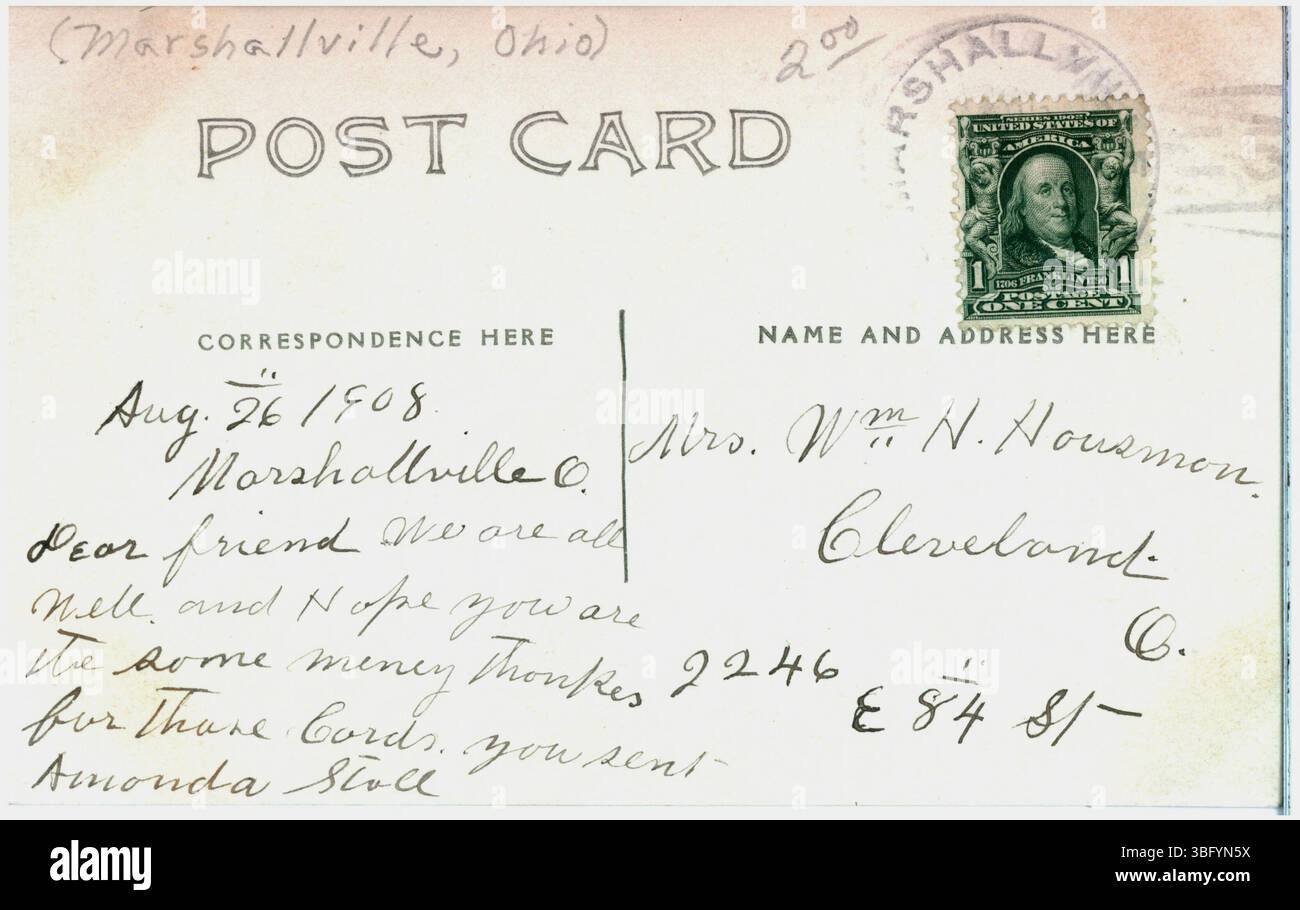 (Marshallville, Ohio)
2 00
MARSHALLVI
POST CARD
SERIES 1902
UNITED STATES OF
AMERICA
1 1
1706 FRANKLIN 1790
POSTAGE
ONE CENT
CORRESPONDENCE HERE
NAME AND ADDRESS HERE
Aug. 26 1908.
Marshallville O.
Dear friend We are all
Well. and Hope you are
the same meney thankes
for those Cards. you sent
Amonda Stoll
Mrs. Wm H. Housmon.
Cleveland.
O.
2246
E 84 St
alamy
alamy
alamy
alamy
alamy
alamy
alamy
Image ID: 3BFYN5X
www.alamy.com